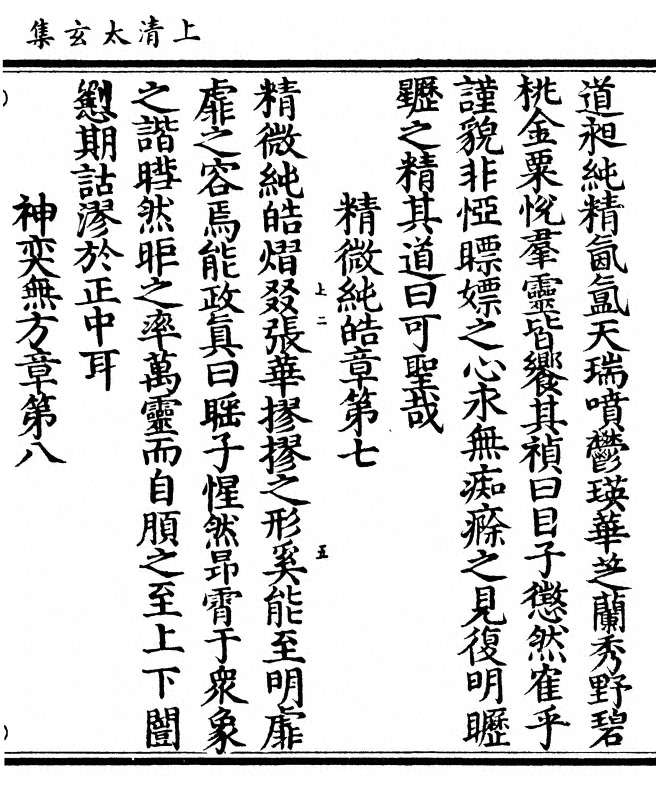 上清太玄集
道昶純精氤氳天瑞噴鬱瑛華芝蘭秀野碧
桃金粟恱羣靈皆饗其禎曰目子懲然寉乎
謹貌非悾瞟嫖之心永無痴瘵之見復明矋
矋之精其道曰可聖哉
精微純皓章第七
精微純皓熠叕張華摎摎之形奚能至明廎
之容焉能政眞曰睢子惺然昻霄于衆象
之諧瞱然昛之率萬靈而自頎之至上下闓
期詁漻於正中耳
神奕無方章第八
上二
五